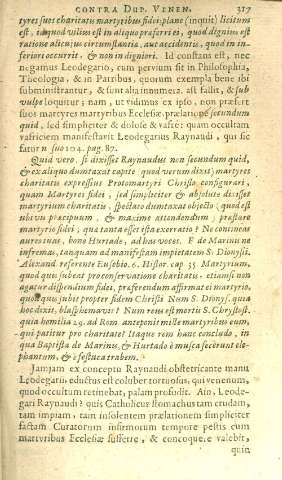 CONTRA DUP. VENEN. 317
tyres suos charitatis martyribus fidei; plane (inquit) licitum
est, id quod vilius est in aliquo præferri ei, quod dignius est
ratione alicujus circumstantia, aut accidentis, quod in in-
feriori occurrit, & non in digniori. Id constans est, nec
negamus Leodegario, cum pervium sit in Philosophia,
Theologia, & in Patribus, quorum exempla bene ibi
subministrantur, & sunt alia innumera. ast fallit, & sub
vulpe loquitur; nam, ut vidimus ex ipso, non præfert
suos martyres martyribus Ecclesiæ prælatione secundum
quid, sed simpliciter & dolose & vafre: quam occultam
vafriciem manifestavit Leodegarius Raynaudi, qui sic
fatur n. 104. pag. 87.
Quid vero, si dixisset Raynaudus non secundum quid,
& ex aliquo dumtaxat capite quod verum dixit; martyres
charitatis expressius Protomartyri Christo configurari,
quam Martyres fidei, sed simpliciter & absolute dixisset
martyrium charitatis, spectato dumtaxat objecto, quod est
ubivis præcipuum, & maxime attendendum; præstare
martyrio fidei; qua tanta esset ista exerratio? Ne contineas
aureo tuas, bone Hurtado, ad has voces. F de Marinu ne
infremas, tanquam ad manifestam impietatem S. Dionysii,
Alexand. referente Eusebio, 6. Histor. cap. 35 Martyrium,
quod quis subeat pro conservatione charitatis, etiamsi non
agatur dispendium fidei, præferendum affirmat ei martyrio,
quod quis subit propter fidem Christi Num S. Dionys. quia
hoc dixit, blasphemavit? Num rens est mortis S. Chrysost.
quia homilia 29. ad Rom. anteponit mille martyribus eum,
qui patitur pro charitate? Itaque rem hanc concludo, in
qua Baptista de Marinis, & Hurtado è musca fecerunt ele-
phantum, & è festuca trabem.
Jam jam ex conceptu Raynaudi obstetricante manu
Leodegarii, eductus est coluber tortuosus, qui venenum,
quod occultum retinebat, palam profudit. Ain, Leode-
gari Raynaudi? quis Catholicus stomachus tam crudam,
tam impiam, tam insolentem prælationem simpliciter
factam Curatorum infirmorum tempore pestis cum
martyribus Ecclesiæ sufferre, & concoquere valebit,
quin